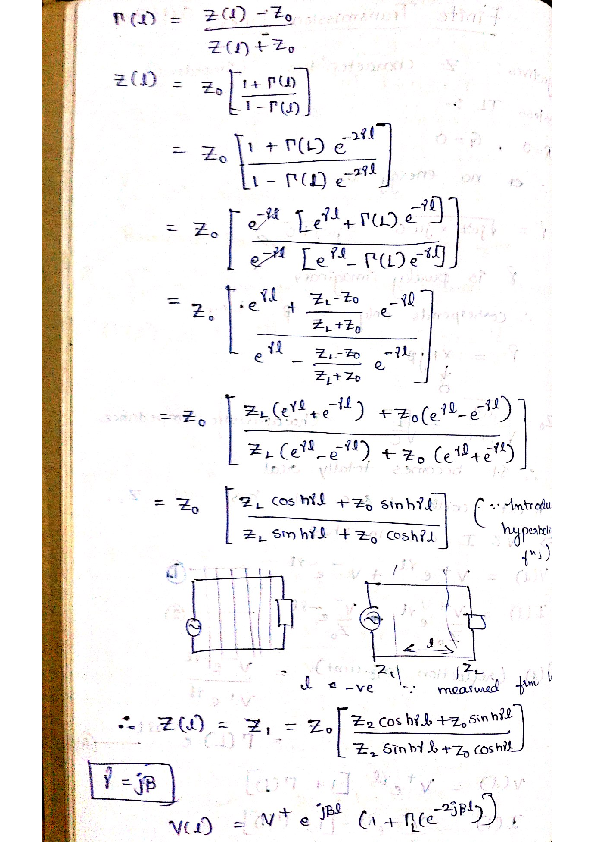 Γ(l) = (Z(l) - Z₀) / (Z(l) + Z₀)
Z(l) = Z₀ [ (1 + Γ(l)) / (1 - Γ(l)) ]
= Z₀ [ (1 + Γ(L) e^(-2γl)) / (1 - Γ(L) e^(-2γl)) ]
= Z₀ [ e^(-γl) [e^(γl) + Γ(L) e^(-γl)] / e^(-γl) [e^(γl) - Γ(L) e^(-γl)] ]
= Z₀ [ (e^(γl) + (Z_L - Z₀)/(Z_L + Z₀) e^(-γl)) / (e^(γl) - (Z_L - Z₀)/(Z_L + Z₀) e^(-γl)) ]
= Z₀ [ (Z_L (e^(γl) + e^(-γl)) + Z₀ (e^(γl) - e^(-γl))) / (Z_L (e^(γl) - e^(-γl)) + Z₀ (e^(γl) + e^(γl))) ]
= Z₀ [ (Z_L cos hγl + Z₀ sinhγl) / (Z_L sin hγl + Z₀ coshγl) ] (∵ Introdu
hyperboli
fⁿs)
l
Z₁ Z_L
l = -ve ∵ measured frm
∴ Z(l) = Z₁ = Z₀ [ (Z₂ cos hγl + Z₀ sin hγl) / (Z₂ sinhγl + Z₀ coshγl) ]
γ = jβ
V(l) = V⁺ e^(jβl) (1 + Γ_L (e^(-2jβl)))